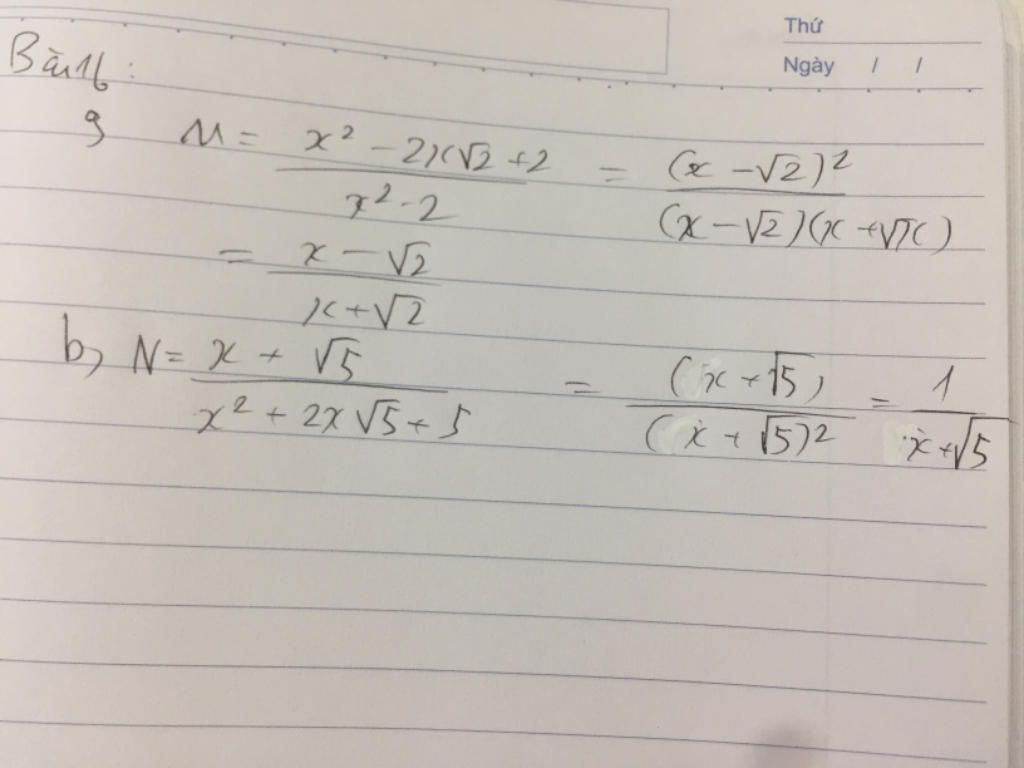 Thứ
Ngày / /
Bài 16 :
a, M = \frac{x^2 - 2x\sqrt{2} + 2}{x^2 - 2} = \frac{(x - \sqrt{2})^2}{(x - \sqrt{2})(x + \sqrt{x})}
= \frac{x - \sqrt{2}}{x + \sqrt{2}}
b, N = \frac{x + \sqrt{5}}{x^2 + 2x\sqrt{5} + 5} = \frac{(x + \sqrt{5})}{(x + \sqrt{5})^2} = \frac{1}{x + \sqrt{5}}